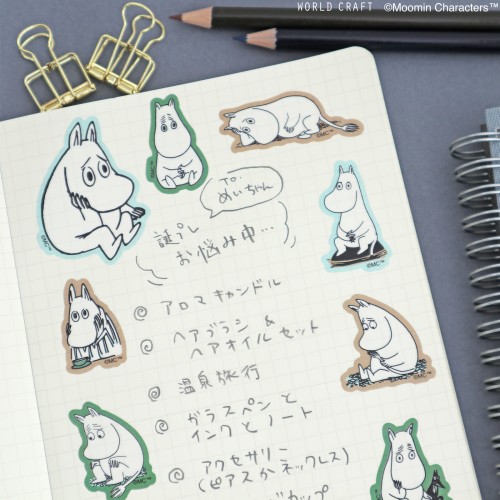 WORLD CRAFT ©Moomin Characters™
To.
めいちゃん
誕プレ
お悩み中…
アロマキャンドル
ヘアブラシ &
ヘアオイルセット
温泉旅行
ガラスペンと
インクとノート
アクセサリー
(ピアスかネックレス)
グカップ
©MC™
©MC™
©MC™